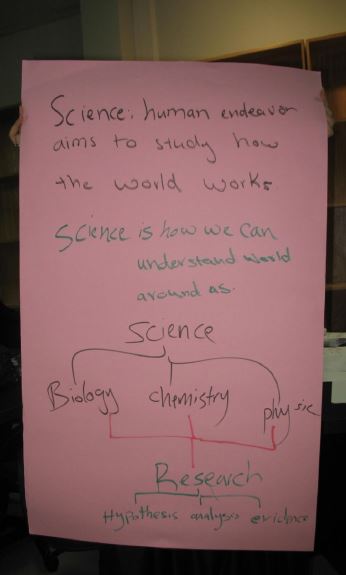 Science: human endeavor
aims to study how
the world works
Science is how we can
understand world
around as.
Science
Biology chemistry physic
Research
Hypothesis analysis evidence